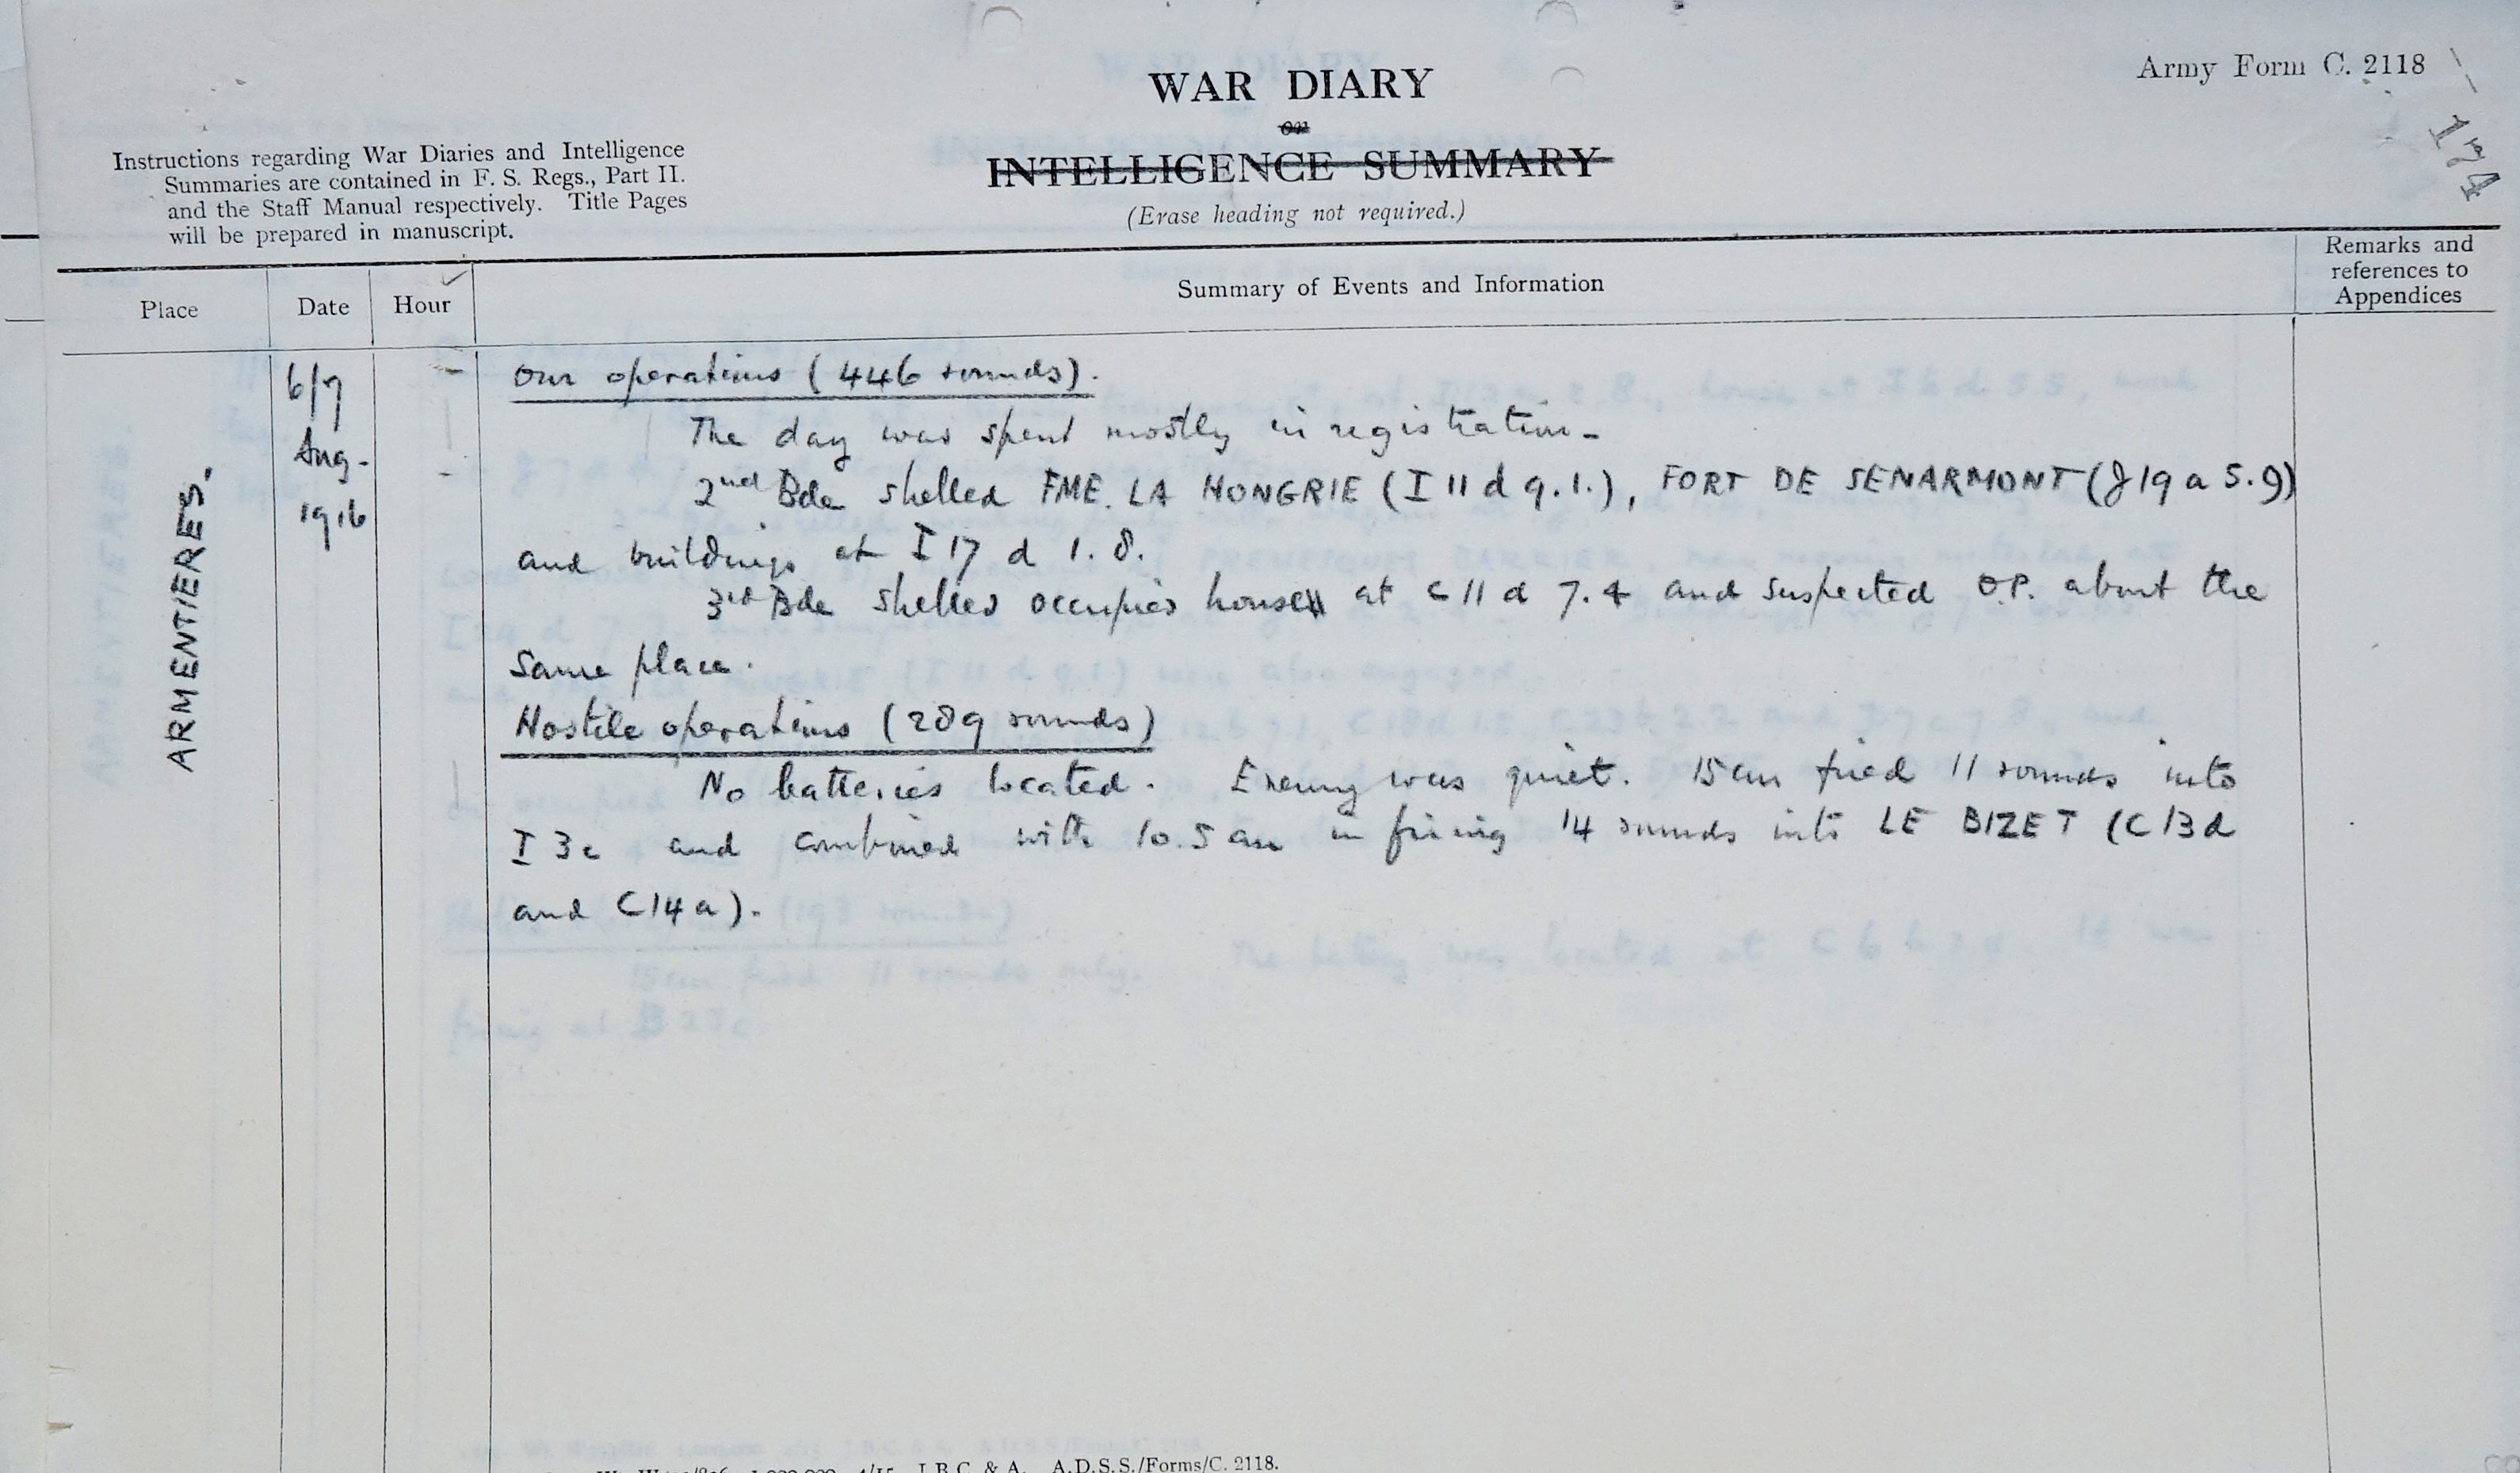 Army Form C. 2118
174
WAR DIARY
OR
INTELLIGENCE SUMMARY
(Erase heading not required.)
Instructions regarding War Diaries and Intelligence
Summaries are contained in F. S. Regs., Part II.
and the Staff Manual respectively. Title Pages
will be prepared in manuscript.
Place
Date
Hour
Summary of Events and Information
Remarks and
references to
Appendices
ARMENTIERES.
6/7
Aug.
1916
Our operations (446 rounds).
The day was spent mostly in registration.
2nd Bde shelled FME. LA HONGRIE (I 11 d 9.1.), FORT DE SENARMONT (J 19 a 5.9)
and buildings at I 17 d 1.8.
3rd Bde shelled occupied house at C 11 d 7.4 and suspected O.P. about the
same place.
Hostile operations (289 rounds)
No batteries located. Enemy was quiet. 15cm fired 11 rounds into
I 3c and combined with 10.5 cm in firing 14 rounds into LE BIZET (C 13d
and C14a).
4/15 J.B.C. & A. A.D.S.S./Forms/C. 2118.